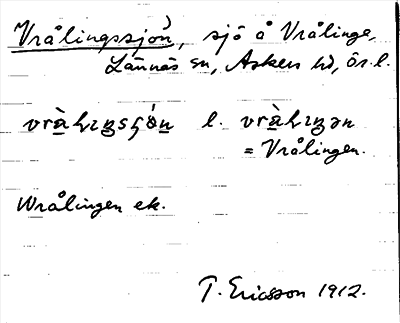 Vrålingssjön, sjö å Vrålinge,
Lännäs sn, Askers hd, Ör. l.
l.
= Vrålingen.
Wrålingen ek.
T. Ericsson 1912.